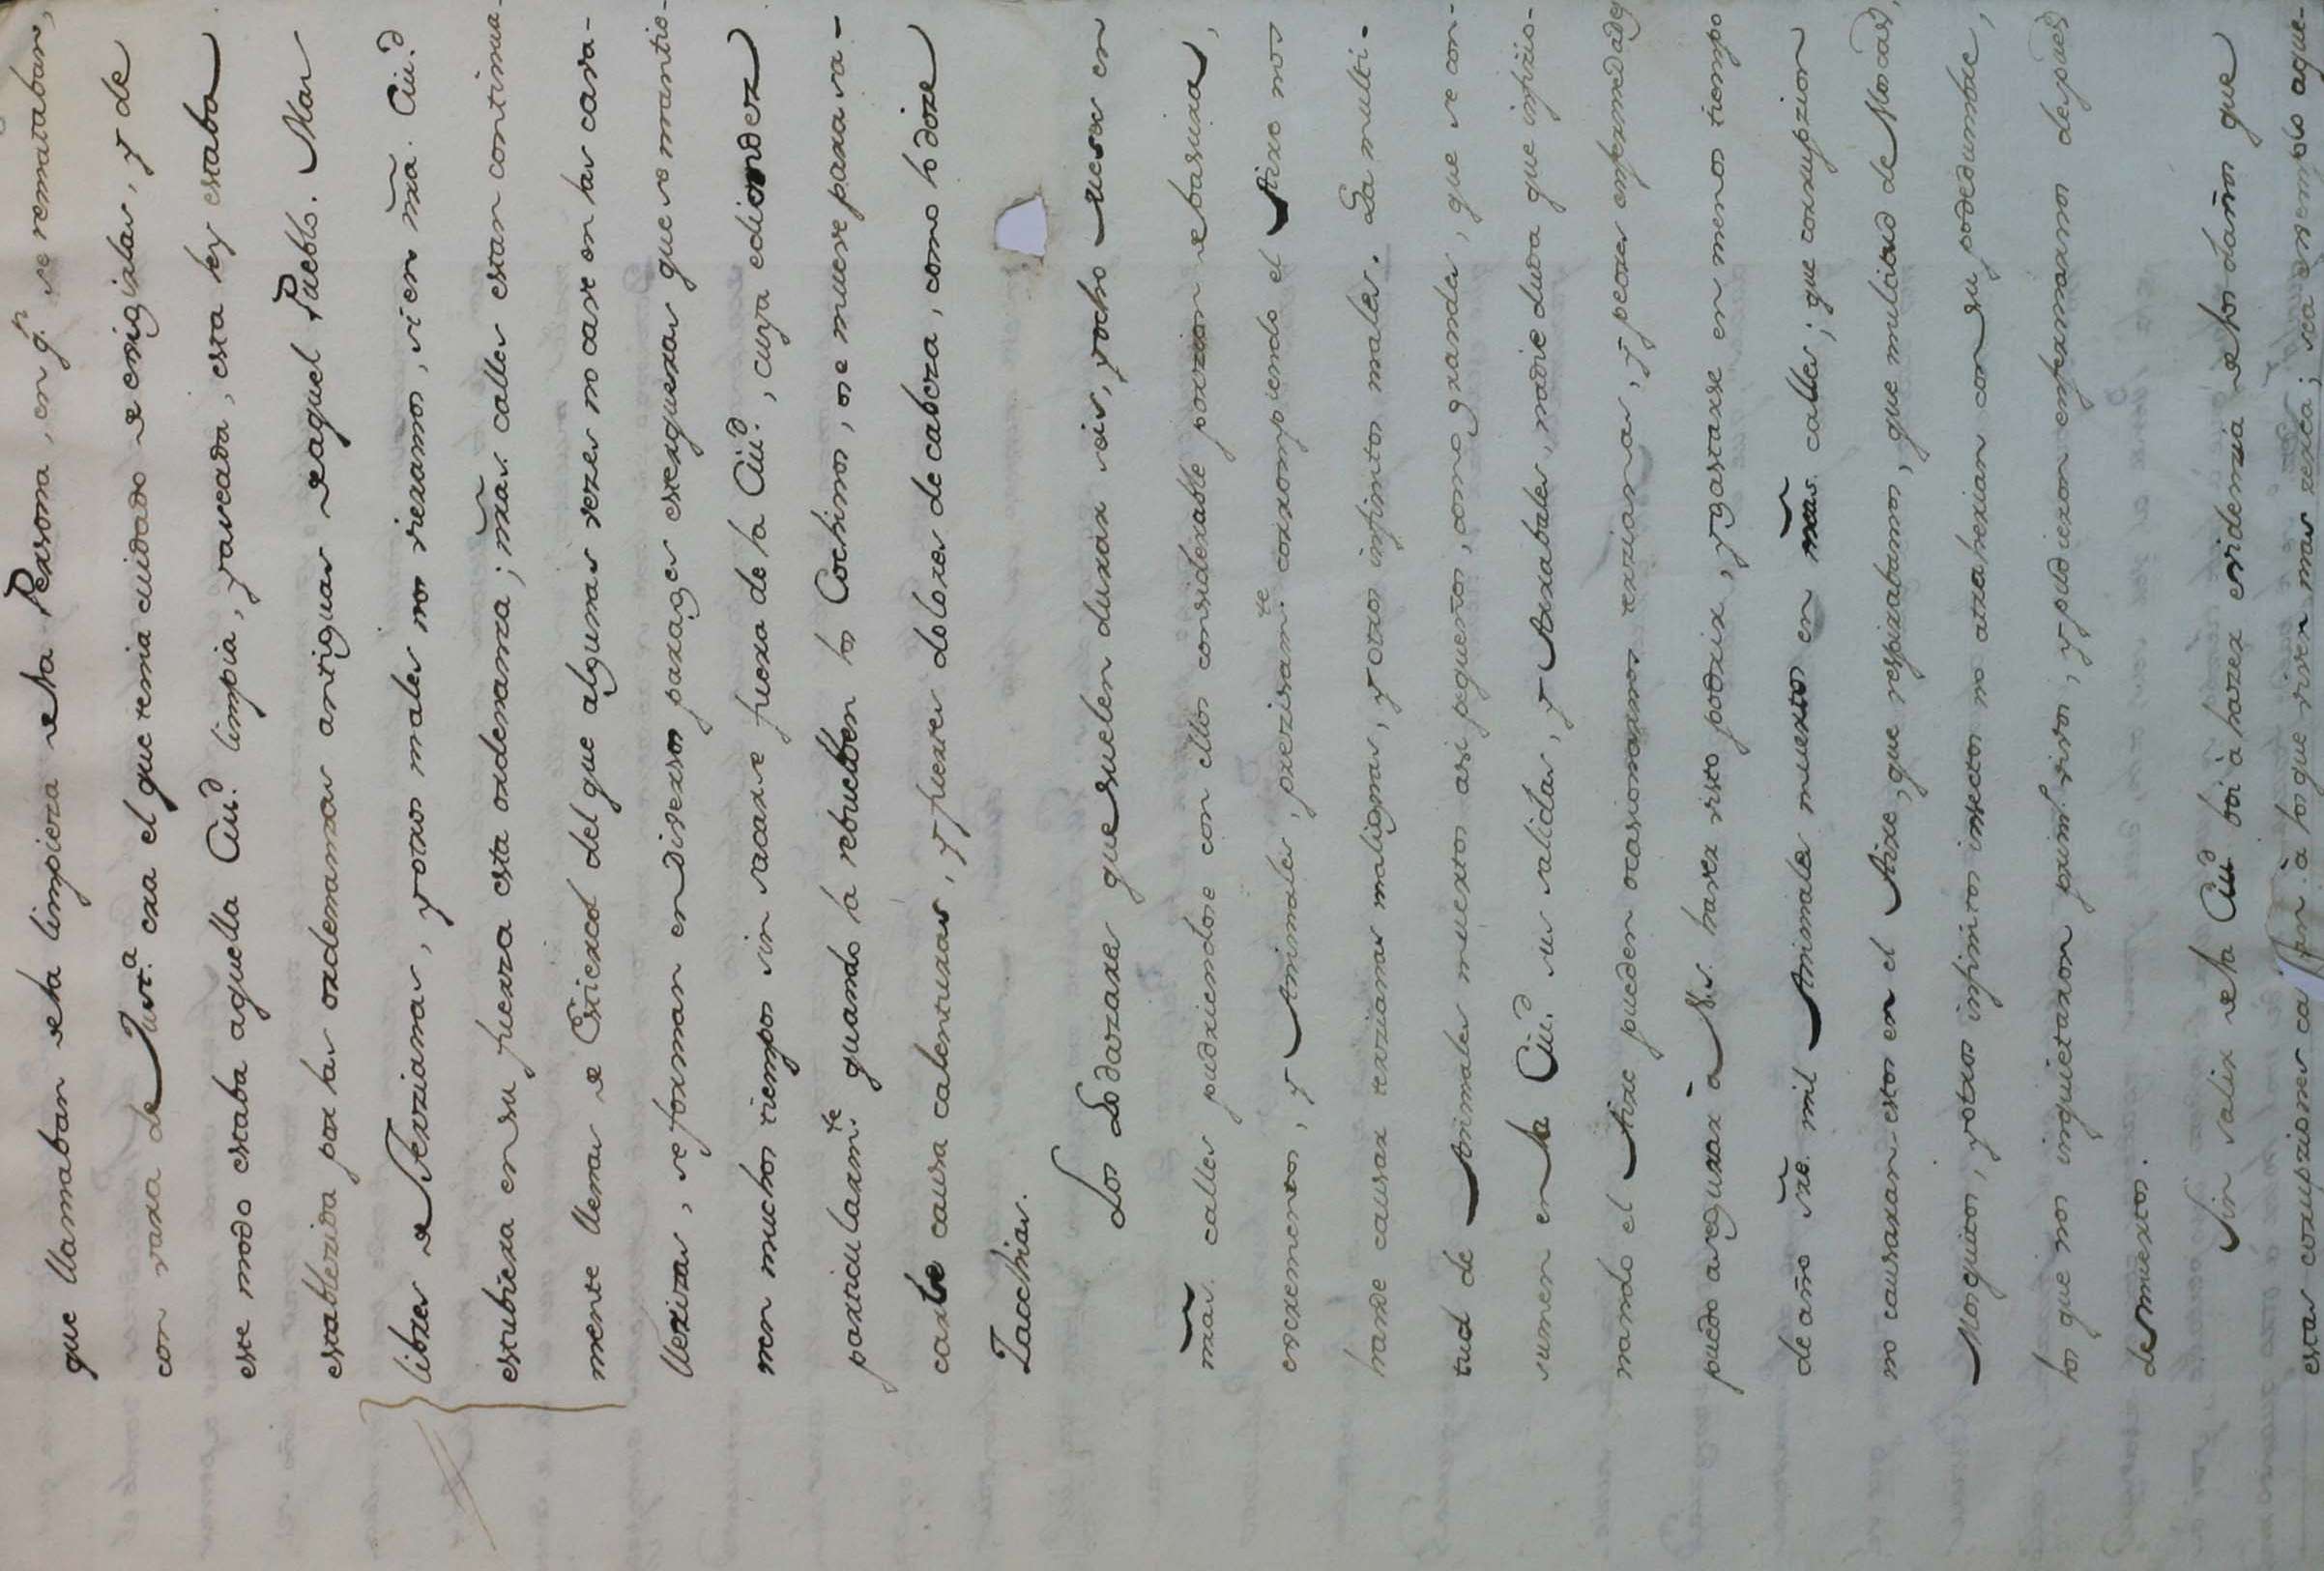 que llamaban de la limpieza de la Persona, en q.n se remataban,
con vara de Just.a era el que tenia cuidado de enrigidar, y de
este modo estaba aquella Ciu.d limpia, y aseada, esta ley estaba
establezida por las ordenanzas antiguas de aquel Pueblo. Mas
libres de Terzianas, y otros males nos vieramos, si en ñra. Ciu.d
estubiera en su fuerza esta ordenanza; ñras. calles estan continua-
mente llenas de Estiercol del que algunas vezes no cave en las cava-
llerizas, se forman en diversos parages estergueras que se mantie-
nen muchos tiempos sin sacarse fuera de la Ciu.d, cuya ediondez
particularm.te quando la rebuelben los Cochinos, o se mueve para sa-
carse causa calenturas, y fuertes dolores de cabeza, como lo dize
Zacchias.
Los Lodazares que suelen durar seis, y ocho meses en
ñras. calles pudriendose con ellos considerable porzion de basura,
escrementos, y Animales, prezisam.te corrompiendo el Aire nos
hande causar terzianas malignas, y otros infinitos males. La multi-
tud de Animales muertos asi pequeños, como grandes, que se con-
sumen en la Ciu.d sus salidas, y Arrabales, nadie duda que infizio-
nando el Aire pueden ocasionarnos terzianas, y peores enfermedades
puedo asegurar à Vs. haver visto podrir, y gastarse en menos tiempo
de año ñre. mil Animales muertos en ñras. calles; que corrupzion
no causaran estos en el Aire, que respirabamos, que multitud de Moscas,
Mosquitos, y otros infinitos insectos no atraherian con su podedumbre,
los que nos inquietaron prim.o vivos, y pudieron enfermarnos despues
de muertos.
Sin salir de la Ciu.d boi à hazer evidemia de los daños que
estas corrupziones ca san à los que viven mas zerca; sea exemplo aque-